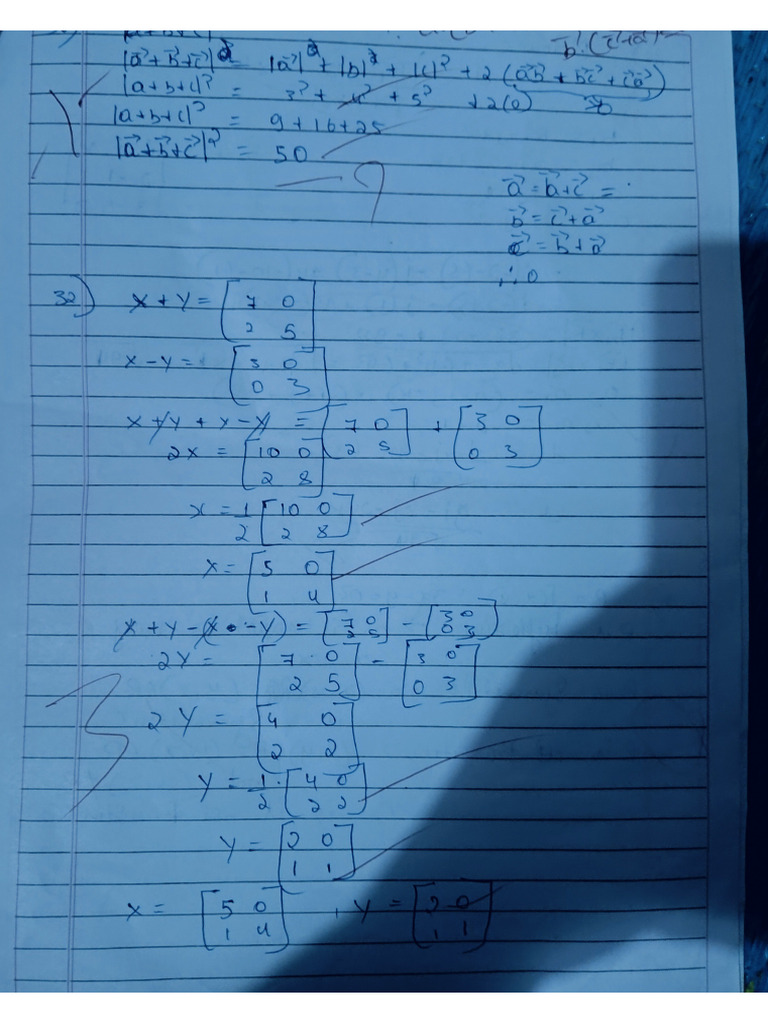 b⃗.(c⃗+a⃗)
|a⃗+b⃗+c⃗|² = |a⃗|²+|b|²+|c|²+2(a⃗b⃗+b⃗c⃗+c⃗a⃗)
|a+b+c|² = 3²+4²+5² +2(0)
|a+b+c|² = 9+16+25
|a⃗+b⃗+c⃗|² = 50
a⃗ = b⃗+c⃗ =
b⃗ = c⃗+a⃗
c⃗ = b⃗+a⃗
∴ 0
32) x+y = [7 0
2 5]
x-y = [3 0
0 3]
x+y+x-y = [7 0 + [3 0
2 5] 0 3]
2x = [10 0
2 8]
x = 1/2 [10 0
2 8]
x = [5 0
1 4]
x+y-(x-y) = [7 0 - [3 0
2 5] 0 3]
2Y = [7 0 - [3 0
2 5] 0 3]
2Y = [4 0
2 2]
Y = 1/2 · [4 0
2 2]
Y = [2 0
1 1]
x = [5 0 , Y = [2 0
1 4] 1 1]